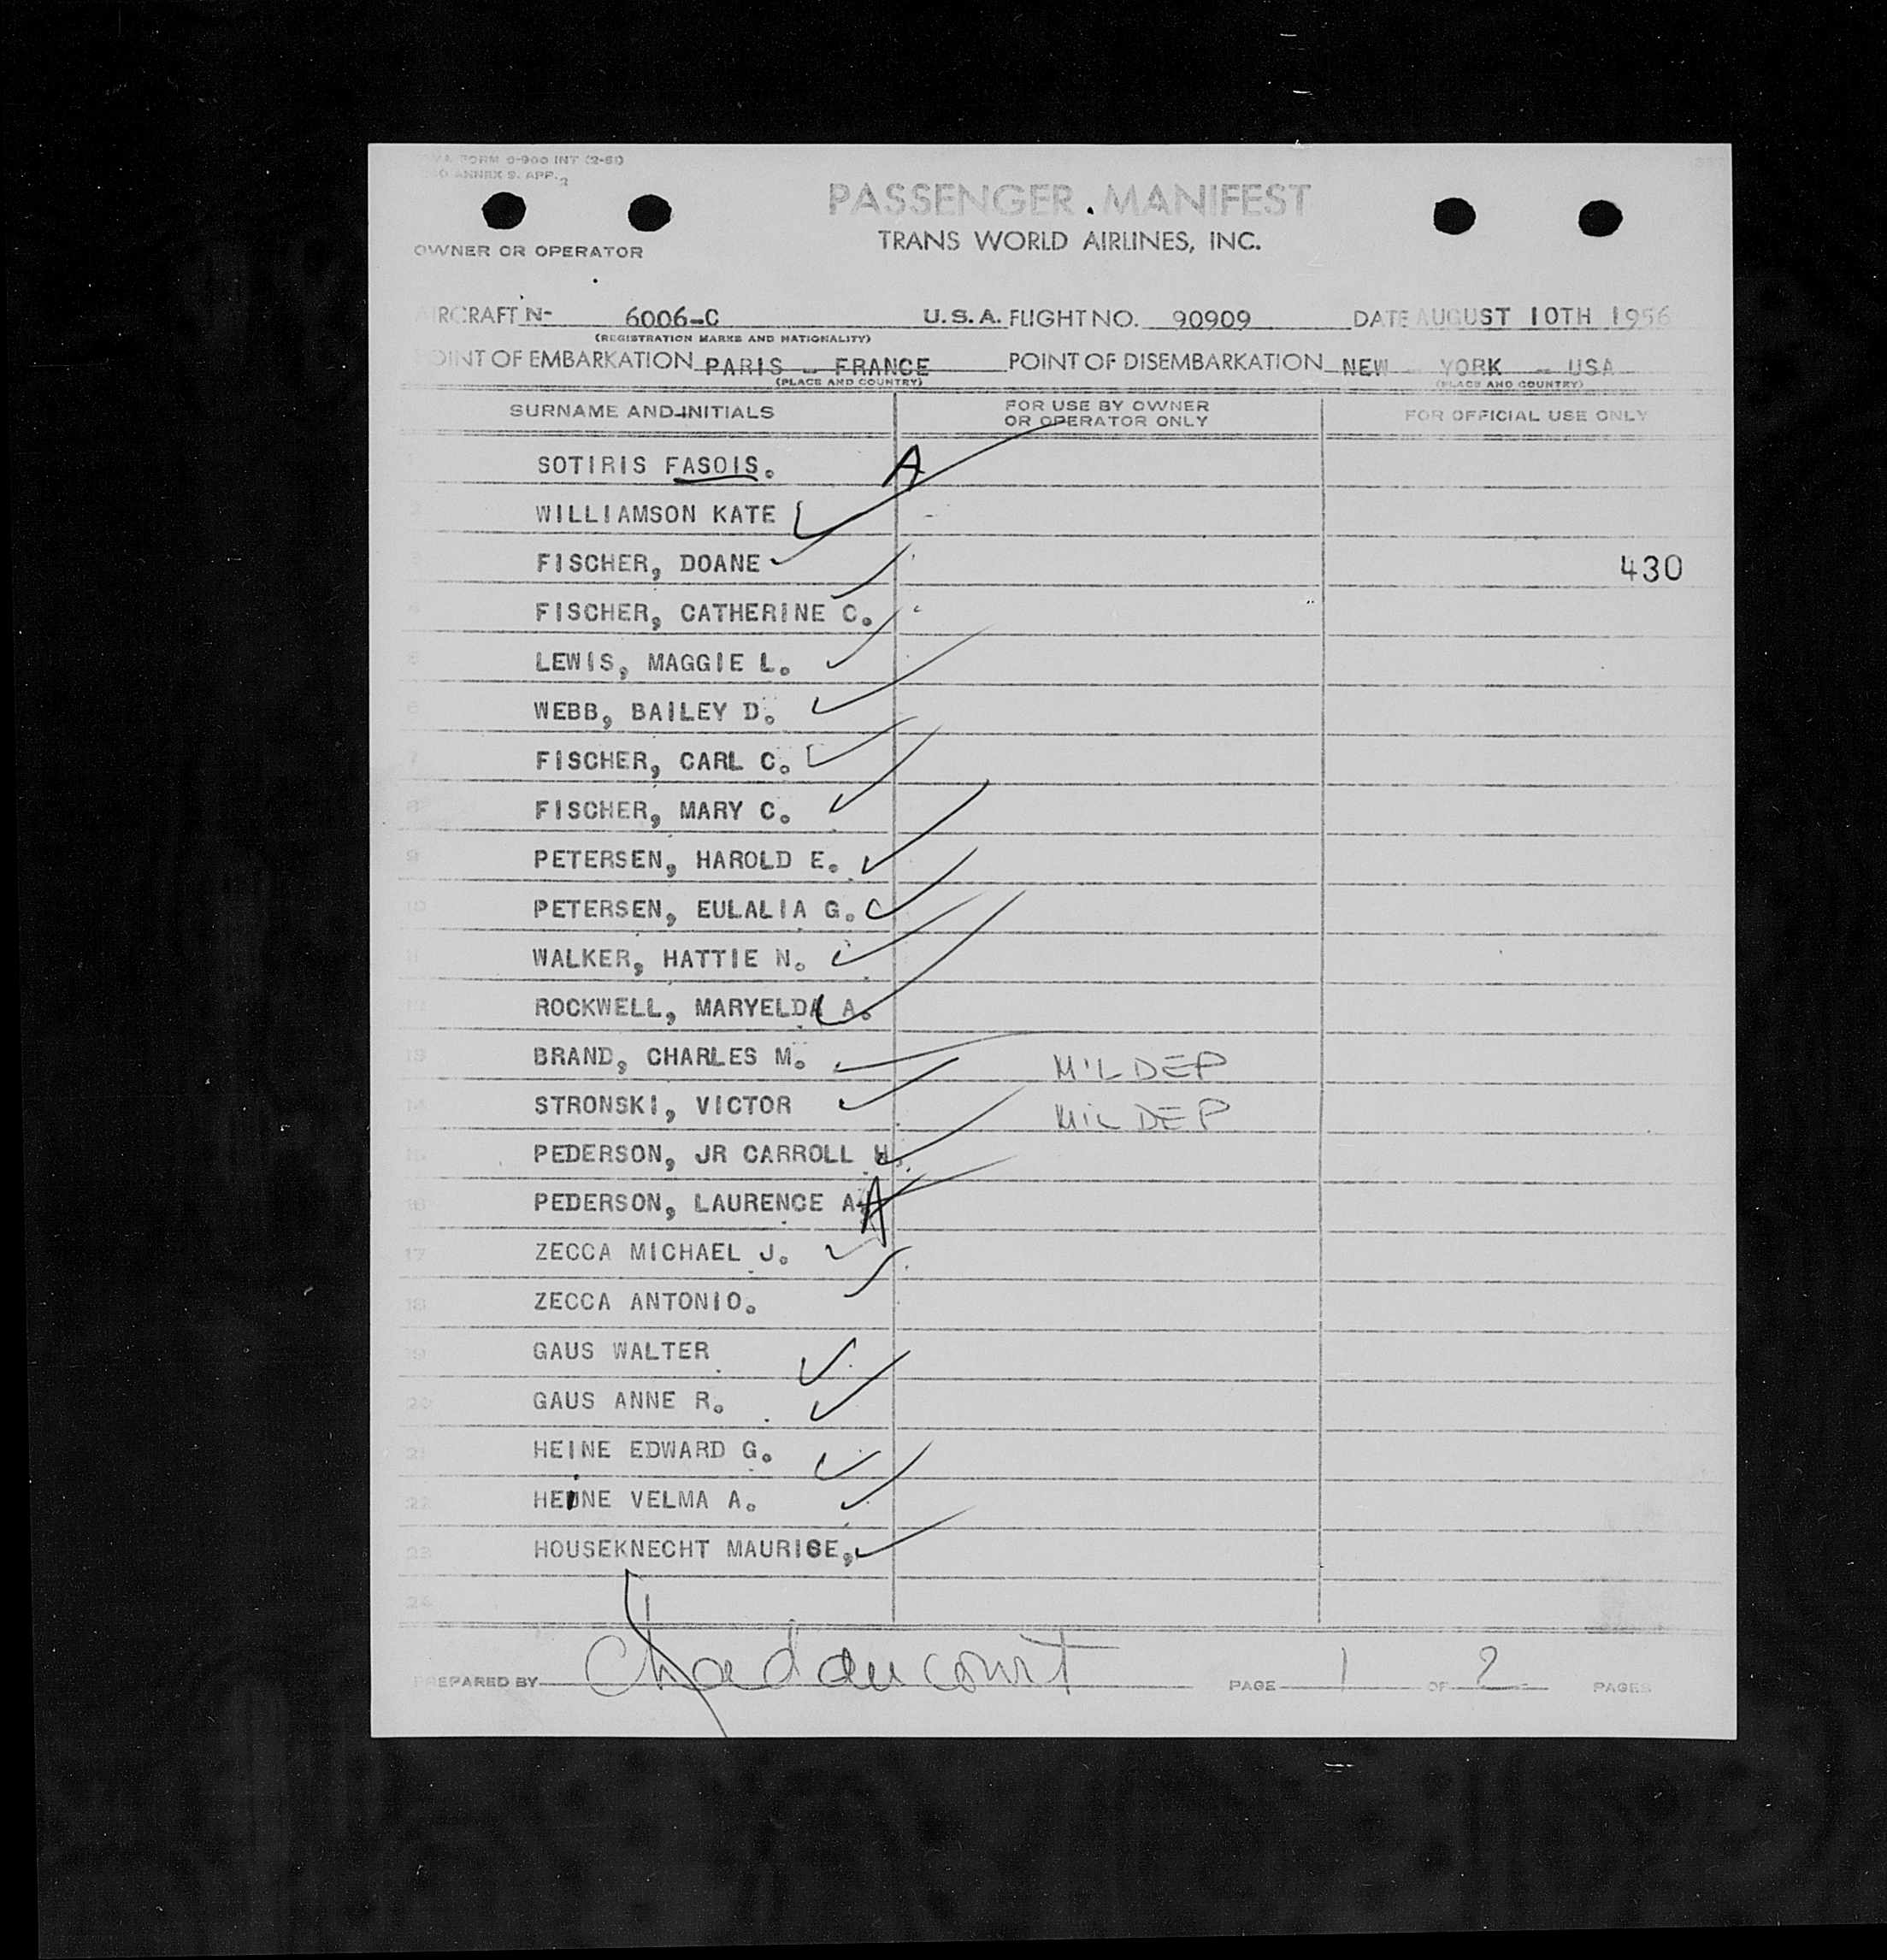 FORM 0-900 INT (2-51)
ANNEX 9. APP. 2
PASSENGER MANIFEST
TRANS WORLD AIRLINES, INC.
OWNER OR OPERATOR
AIRCRAFT N- 6006-C U.S.A. FLIGHT NO. 90909 DATE AUGUST 10TH 1956
(REGISTRATION MARKS AND NATIONALITY)
POINT OF EMBARKATION PARIS - FRANCE POINT OF DISEMBARKATION NEW YORK - USA
(PLACE AND COUNTRY) (PLACE AND COUNTRY)
SURNAME AND INITIALS FOR USE BY OWNER OR OPERATOR ONLY FOR OFFICIAL USE ONLY
1 SOTIRIS FASOIS. A
2 WILLIAMSON KATE
3 FISCHER, DOANE 430
4 FISCHER, CATHERINE C.
5 LEWIS, MAGGIE L.
6 WEBB, BAILEY D.
7 FISCHER, CARL C.
8 FISCHER, MARY C.
9 PETERSEN, HAROLD E.
10 PETERSEN, EULALIA G.
11 WALKER, HATTIE N.
12 ROCKWELL, MARYELDA A.
13 BRAND, CHARLES M. MILDEP
14 STRONSKI, VICTOR MILDEP
15 PEDERSON, JR CARROLL
16 PEDERSON, LAURENCE A. A
17 ZECCA MICHAEL J.
18 ZECCA ANTONIO.
19 GAUS WALTER
20 GAUS ANNE R.
21 HEINE EDWARD G.
22 HEINE VELMA A.
23 HOUSEKNECHT MAURICE,
24
PREPARED BY PAGE 1 OF 2 PAGES